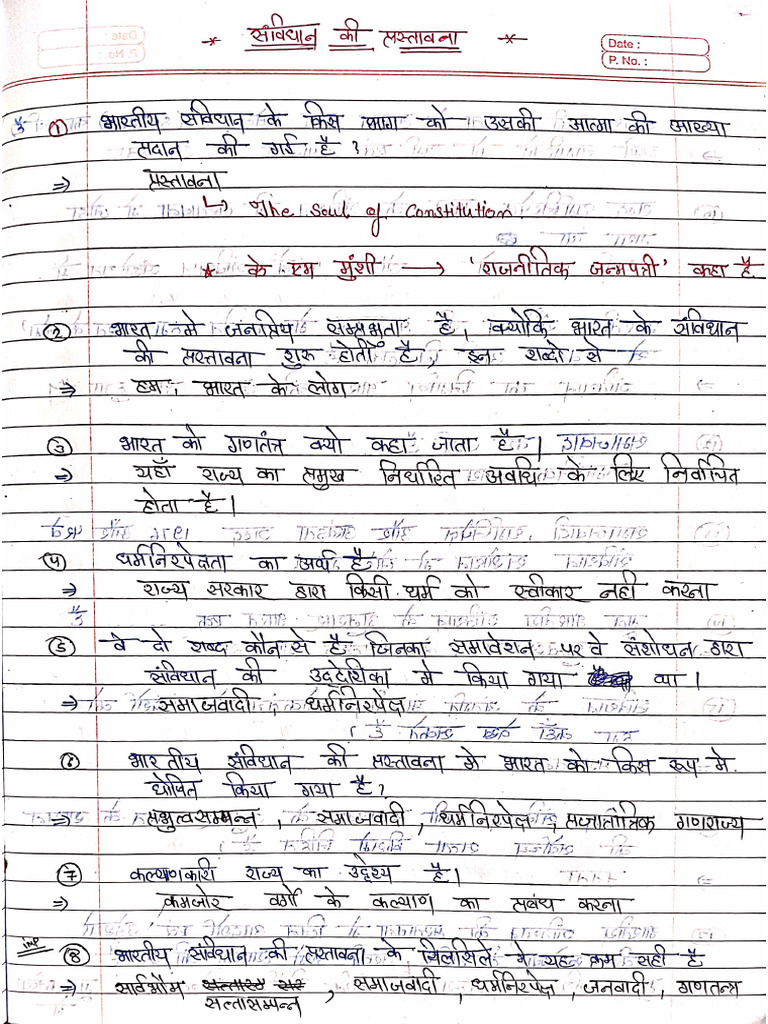 * संविधान की प्रस्तावना *
Date :
P. No. :
① भारतीय संविधान के किस भाग को उसकी आत्मा की आख्या
प्रदान की गई है ?
⇒ प्रस्तावना
↳ The Soul of Constitution
* के एम मुंशी → 'राजनीतिक जन्मपत्री' कहा है
② भारत मे जनप्रिय सम्प्रभुता है, क्योकि भारत के संविधान
की प्रस्तावना शुरु होती है, इन शब्दो से
⇒ हम, भारत के लोग
③ भारत को गणतंत्र क्यो कहा जाता है |
⇒ यहाँ राज्य का प्रमुख निर्धारित अवधि के लिए निर्वाचित
होता है |
④ धर्मनिरपेक्षता का अर्थ है
⇒ राज्य सरकार द्वारा किसी धर्म को स्वीकार नही करना
⑤ वे दो शब्द कौन से है जिनका समावेशन 42 वे संशोधन द्वारा
संविधान की उददेशिका मे किया गया था |
⇒ समाजवादी, धर्मनिरपेक्ष
⑥ भारतीय संविधान की प्रस्तावना मे भारत को किस रूप मे
घोषित किया गया है ?
⇒ प्रभुत्वसम्पन्न, समाजवादी, धर्मनिरपेक्ष, प्रजातांत्रिक गणराज्य
⑦ कल्याणकारी राज्य का उद्देश्य है |
⇒ कमजोर वर्गो के कल्याण का प्रबंध करना
imp ⑧ भारतीय संविधान की प्रस्तावना के सिलसिले मे यह क्रम सही है
⇒ सार्वभौम सत्तासम्पन्न, समाजवादी, धर्मनिरपेक्ष, जनवादी, गणतन्त्र